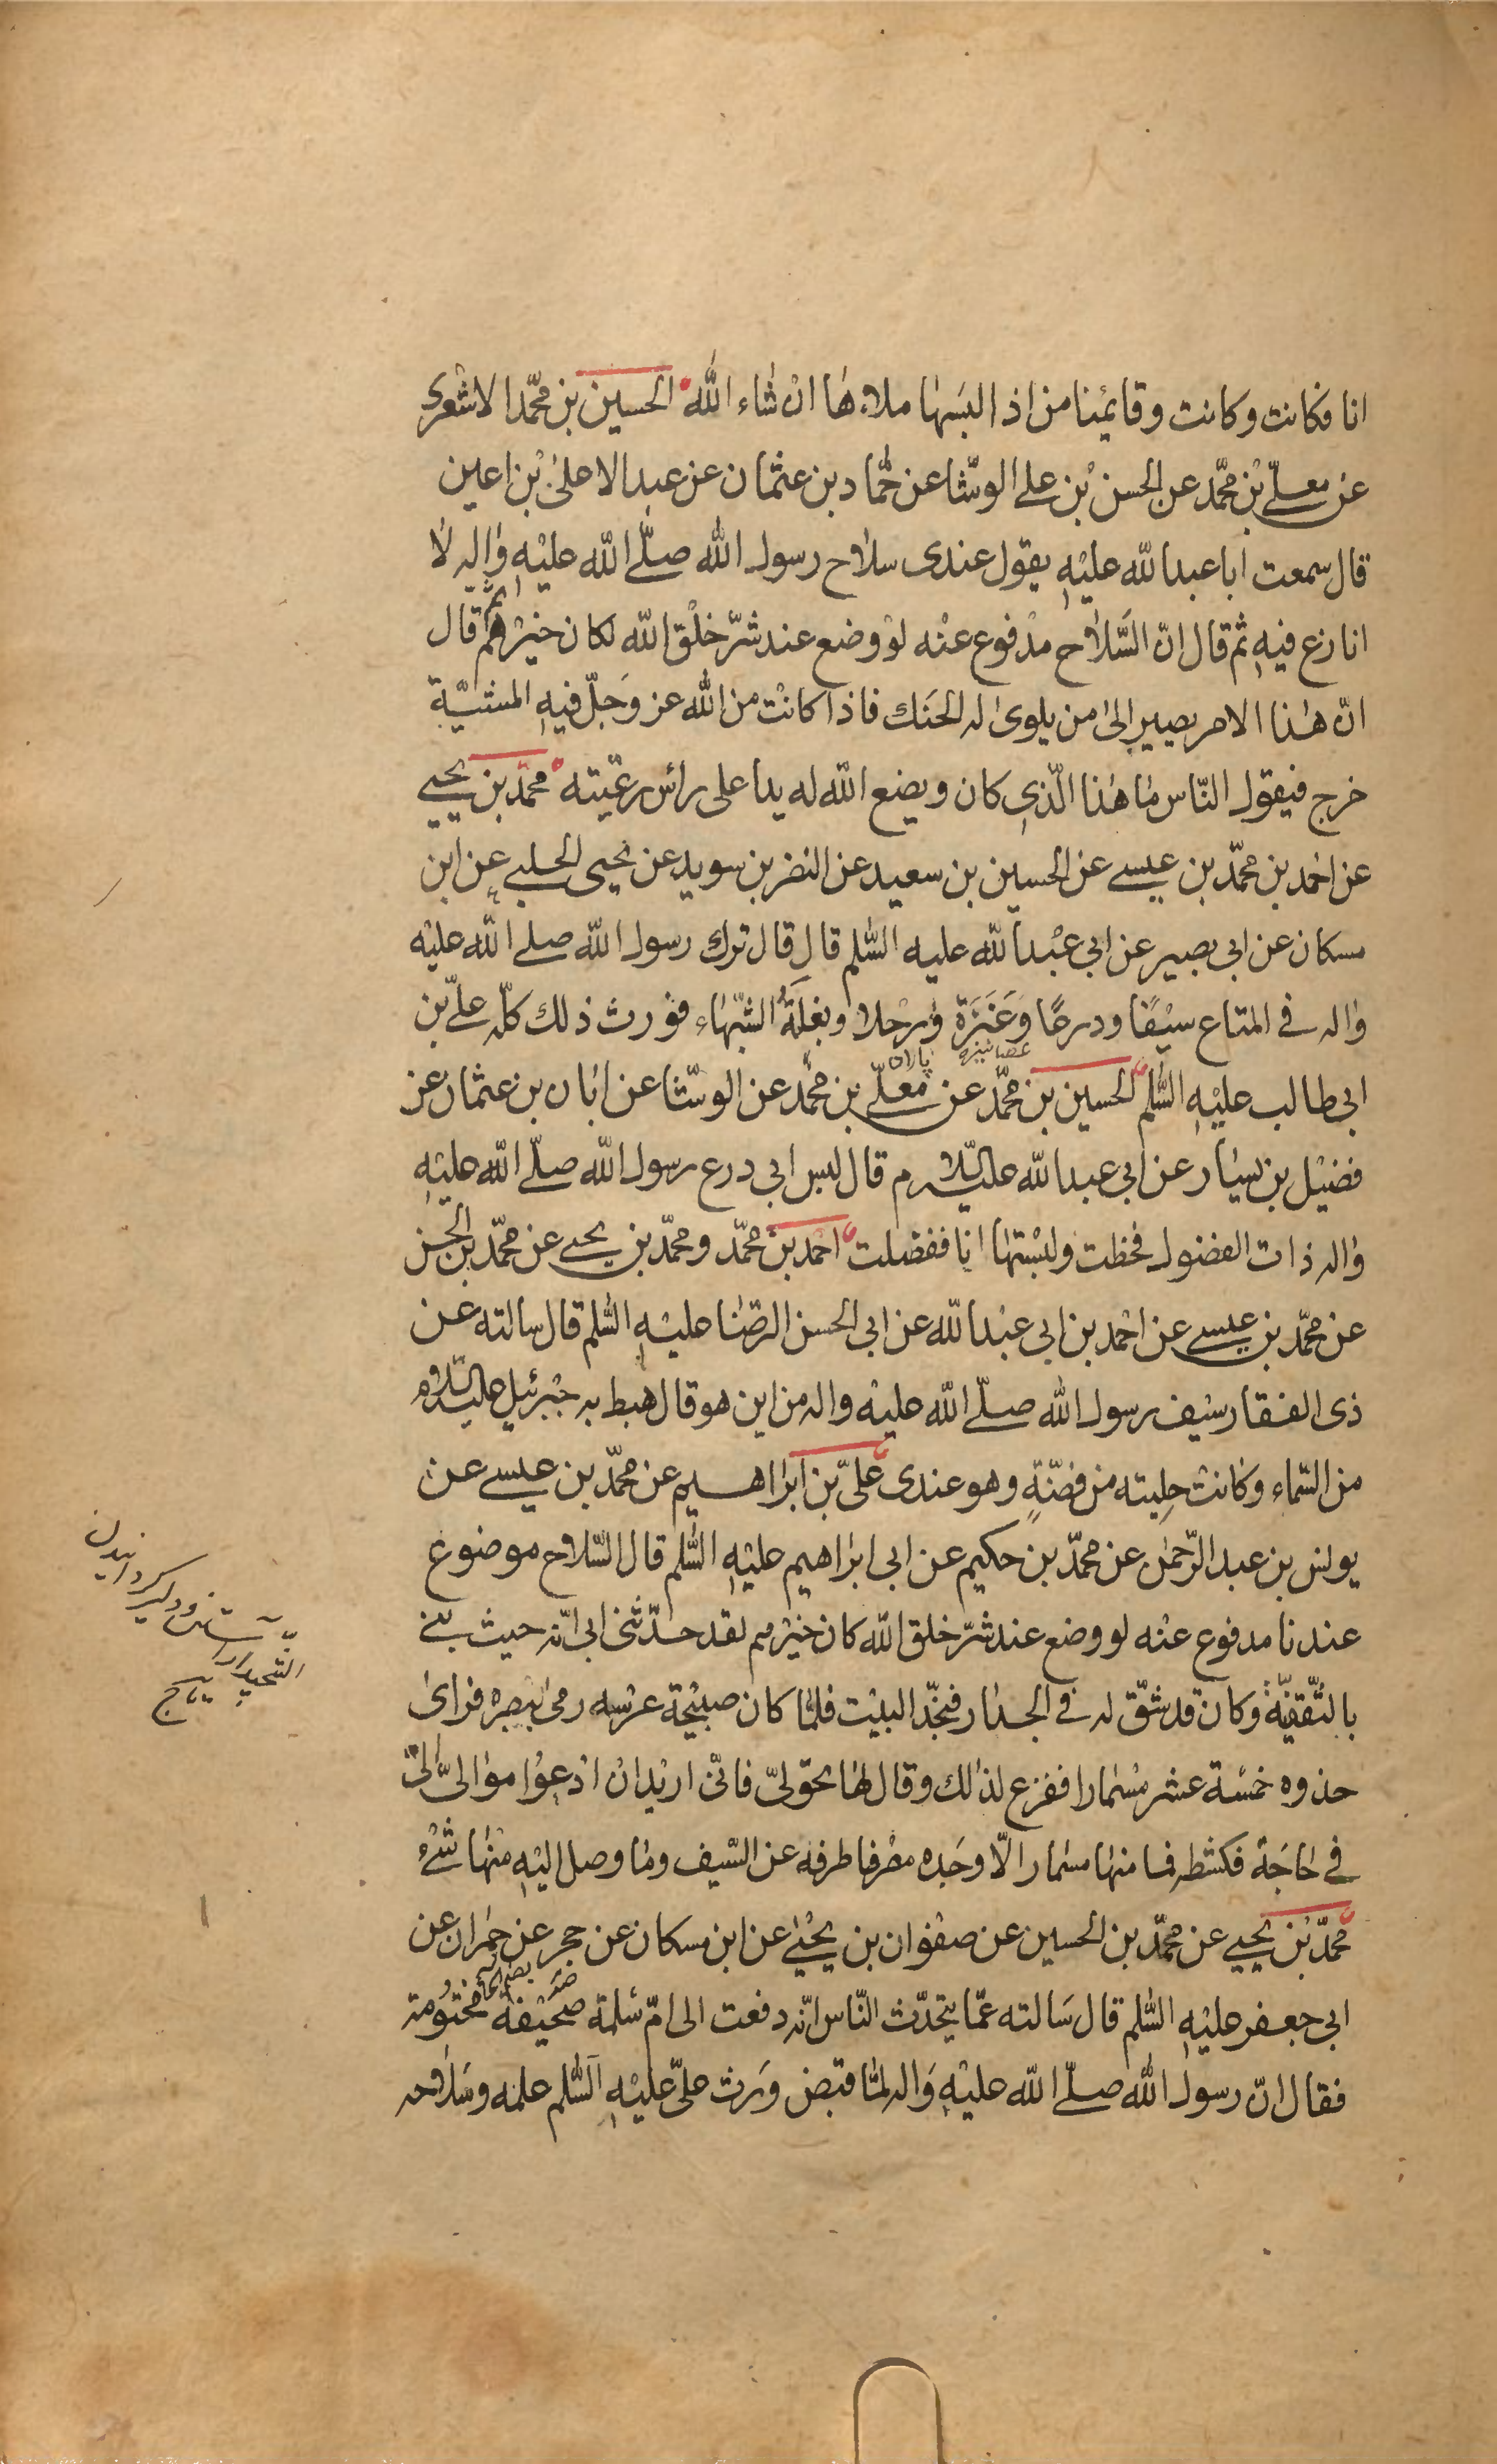 انا فكانت وكانت وقائمنا من اذا لبسها ملاءها ان شاء الله الحسين بن محمّد الاشعرى
عن معلّى بن محمّد عن الحسن بن على الوشّا عن حمّاد بن عثمان عن عبد الاعلى بن اعين
قال سمعت ابا عبد الله عليه يقول عندى سلاح رسول الله صلّى الله عليه واله لا
انازع فيه ثم قال انّ السّلاح مدفوع عنه لو وضع عند شرّ خلق الله لكان خيرهم ثم قال
انّ هذا الامر يصير الى من يلوى له الحنك فاذا كانت من الله عز وجلّ فيه المشيّة
خرج فيقول النّاس ما هذا الّذى كان ويضع الله له يدا على رأس رعيّته محمّد بن يحيى
عن احمد بن محمّد بن عيسى عن الحسين بن سعيد عن النضر بن سويد عن يحيى الحلبى عن ابن
مسكان عن ابى بصير عن ابى عبد الله عليه السّلم قال قال ترك رسول الله صلى الله عليه
واله فى المتاع سيفا ودرعا وعَنَزَة ورحلا وبغلَةُ الشّهباء فورث ذلك كلّه علىّ بن
عصا نيزه پالان
ابى طالب عليه السّلم الحسين بن محمّد عن معلّى بن محمّد عن الوشّا عن ابان بن عثمان عن
فضيل بن يسار عن ابى عبد الله عليه السّلام قال لبس ابى درع رسول الله صلّى الله عليه
واله ذات الفضول فخطت ولبستها انا ففضلت احمد بن محمّد ومحمّد بن يحيى عن محمّد بن الحسن
عن محمّد بن عيسى عن احمد بن ابى عبد الله عن ابى الحسن الرضا عليه السّلم قال سالته عن
ذى الفقار سيف رسول الله صلّى الله عليه واله من اين هو قال هبط به جبرئيل عليه السّلام
من السّماء وكانت حليته من فضّةٍ وهو عندى علىّ بن ابراهيم عن محمّد بن عيسى عن
يونس بن عبد الرّحمن عن محمّد بن حكيم عن ابى ابراهيم عليه السّلم قال السّلاح موضوع
عندنا مدفوع عنه لو وضع عند شرّ خلق الله كان خيرهم لقد حدّثنى ابى انّه حيث بنى
بالثّقفيّة وكان قد شقّ له فى الجدار فنجّد البيت فلمّا كان صبيحة عرسه رمى ببصره فراى
حذوه خمسة عشر مسمارا ففزع لذلك وقال لها تحوّلى فانّى اريد ان ادعوا موالىّ
فى حاجة فكشطه فما منها مسمار الّا وجده مصرفا طرفه عن السّيف وما وصل اليه منها شىء
محمّد بن يحيى عن محمّد بن الحسين عن صفوان بن يحيى عن ابن مسكان عن حجر عن حمران عن
ابى جعفر عليه السّلم قال سالته عمّا يتحدّث النّاس انّه دفعت الى امّ سلمة صحيفة مختومة
فقال انّ رسول الله صلّى الله عليه واله لمّا قبض ورث علىّ عليه السّلم علمه وسلاحه